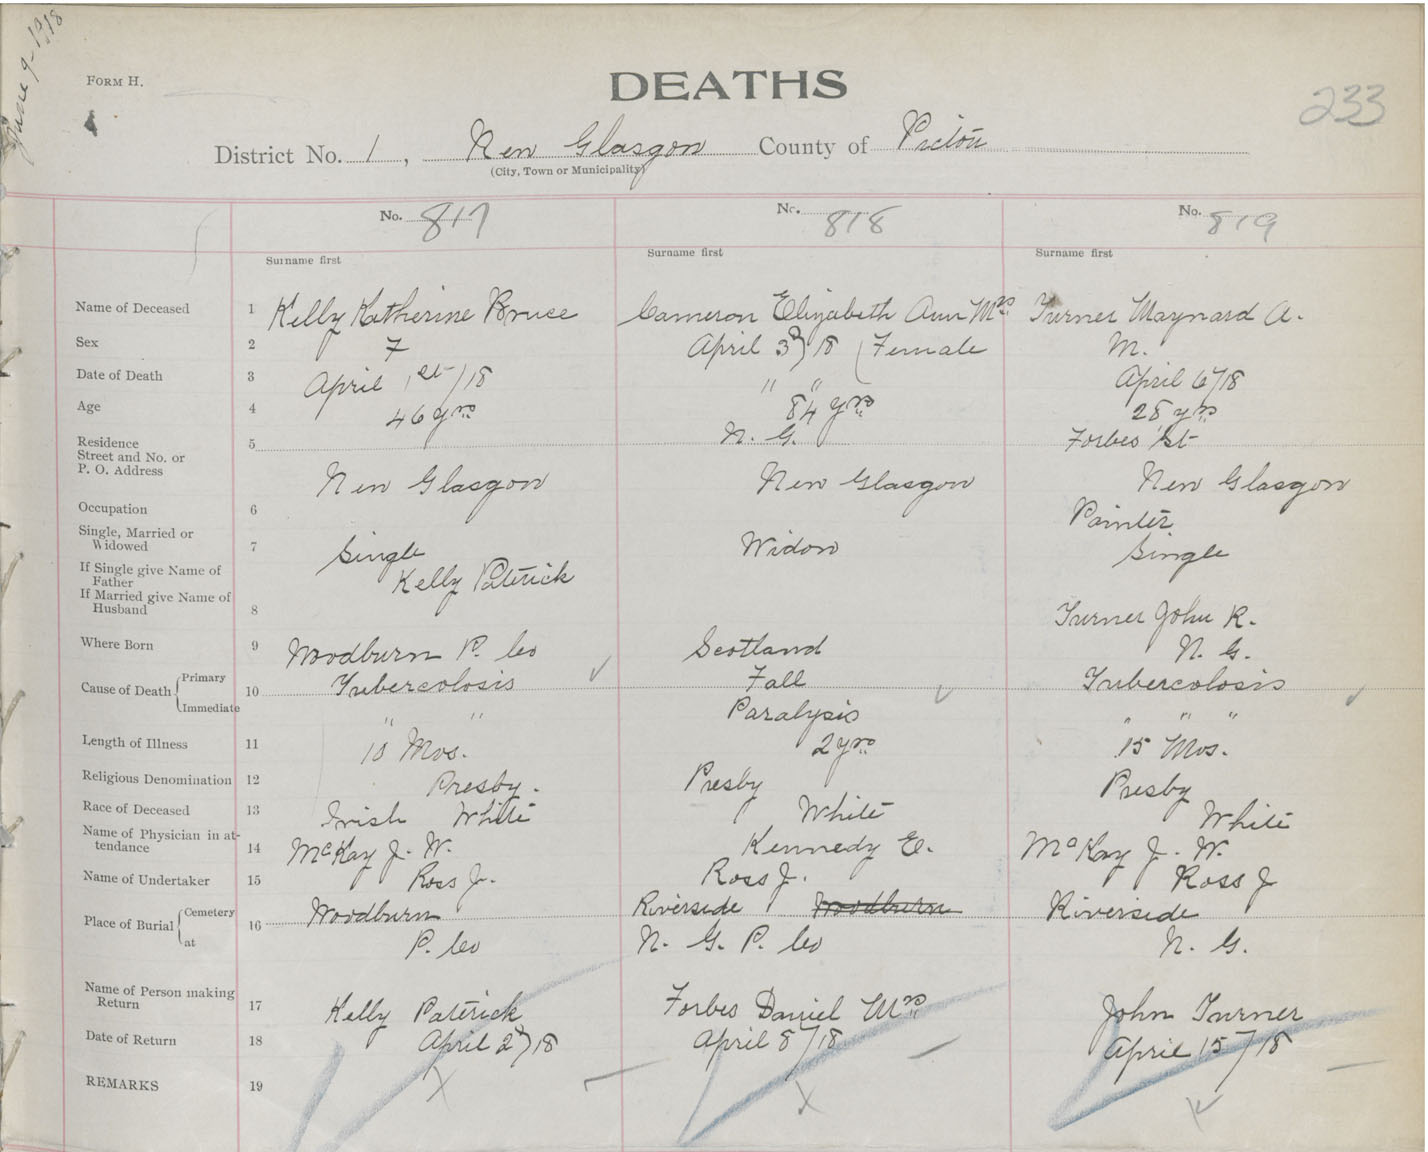 June 9-1918
FORM H.
DEATHS
233
District No. 1, New Glasgow County of Pictou
(City, Town or Municipality)
No. 817 No. 818 No. 819
Surname first Surname first Surname first
Name of Deceased 1 Kelly Katherine Bruce Cameron Elizabeth Ann Mrs Turner Maynard A.
Sex 2 F April 3rd/18 (Female M.
Date of Death 3 April 1st/18 " " April 6/18
Age 4 46 yrs 84 yrs 28 yrs
Residence 5 N. G. Forbes St
Street and No. or
P. O. Address New Glasgow New Glasgow New Glasgow
Occupation 6 Painter
Single, Married or
Widowed 7 Single Widow Single
If Single give Name of
Father Kelly Patrick
If Married give Name of
Husband 8 Turner John R.
Where Born 9 Woodburn P. Co Scotland N. G.
Cause of Death Primary 10 Tubercolosis Fall Tubercolosis
Immediate " " Paralysis " " "
Length of Illness 11 10 Mos. 2 yrs 15 Mos.
Religious Denomination 12 Presby. Presby Presby
Race of Deceased 13 Irish White White White
Name of Physician in at-
tendance 14 McKay J. W. Kennedy E. McKay J. W.
Name of Undertaker 15 Ross J. Ross J. Ross J
Place of Burial Cemetery 16 Woodburn Riverside Woodburn Riverside
at P. Co N. G. P. Co N. G.
Name of Person making
Return 17 Kelly Patrick Forbes Daniel Mrs John Turner
Date of Return 18 April 2nd/18 April 8/18 April 15/18
REMARKS 19 X X